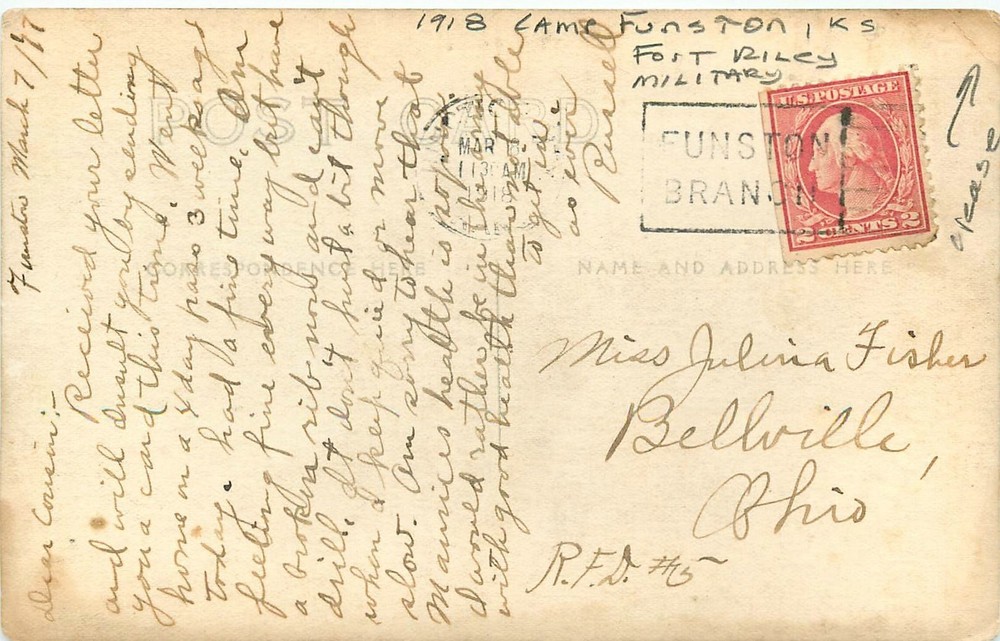 1918 CAMP FUNSTON, KS
FORT RILEY
MILITARY
crease
POST CARD
CORRESPONDENCE HERE
NAME AND ADDRESS HERE
MAR 8
11 30 AM
1918
FUNSTON
BRANCH
U.S. POSTAGE
2 CENTS 2
Funston March 7/
Dear Cousin:-
Received your letter
and will insult you by sending
you a card this time. Was
home on a 4 day pass 3 weeks ago
today. had a fine time. Am
feeling fine every way but have
a broken rib now and can't
drill. It don't hurt a bit though
when I keep quiet or move
slow. Am sorry to hear that
Maurice's health is poor.
I would rather be in the army
with good health than not able
to get in.
as ever
Russell
Miss Julina Fisher
Bellville,
Ohio
R.F.D. #5